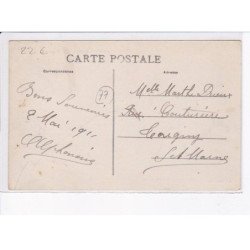 22 €
CARTE POSTALE
Correspondance
Adresse
77
Bons Souvenirs
2 Mai 1911
Alphonsine
Melle Marthe Prieux
Couturière
Set Marne